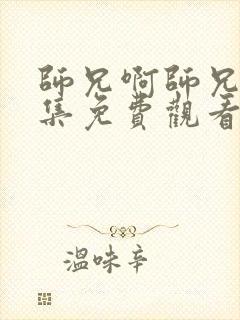 師兄啊師兄
集免費觀看
溫味辛